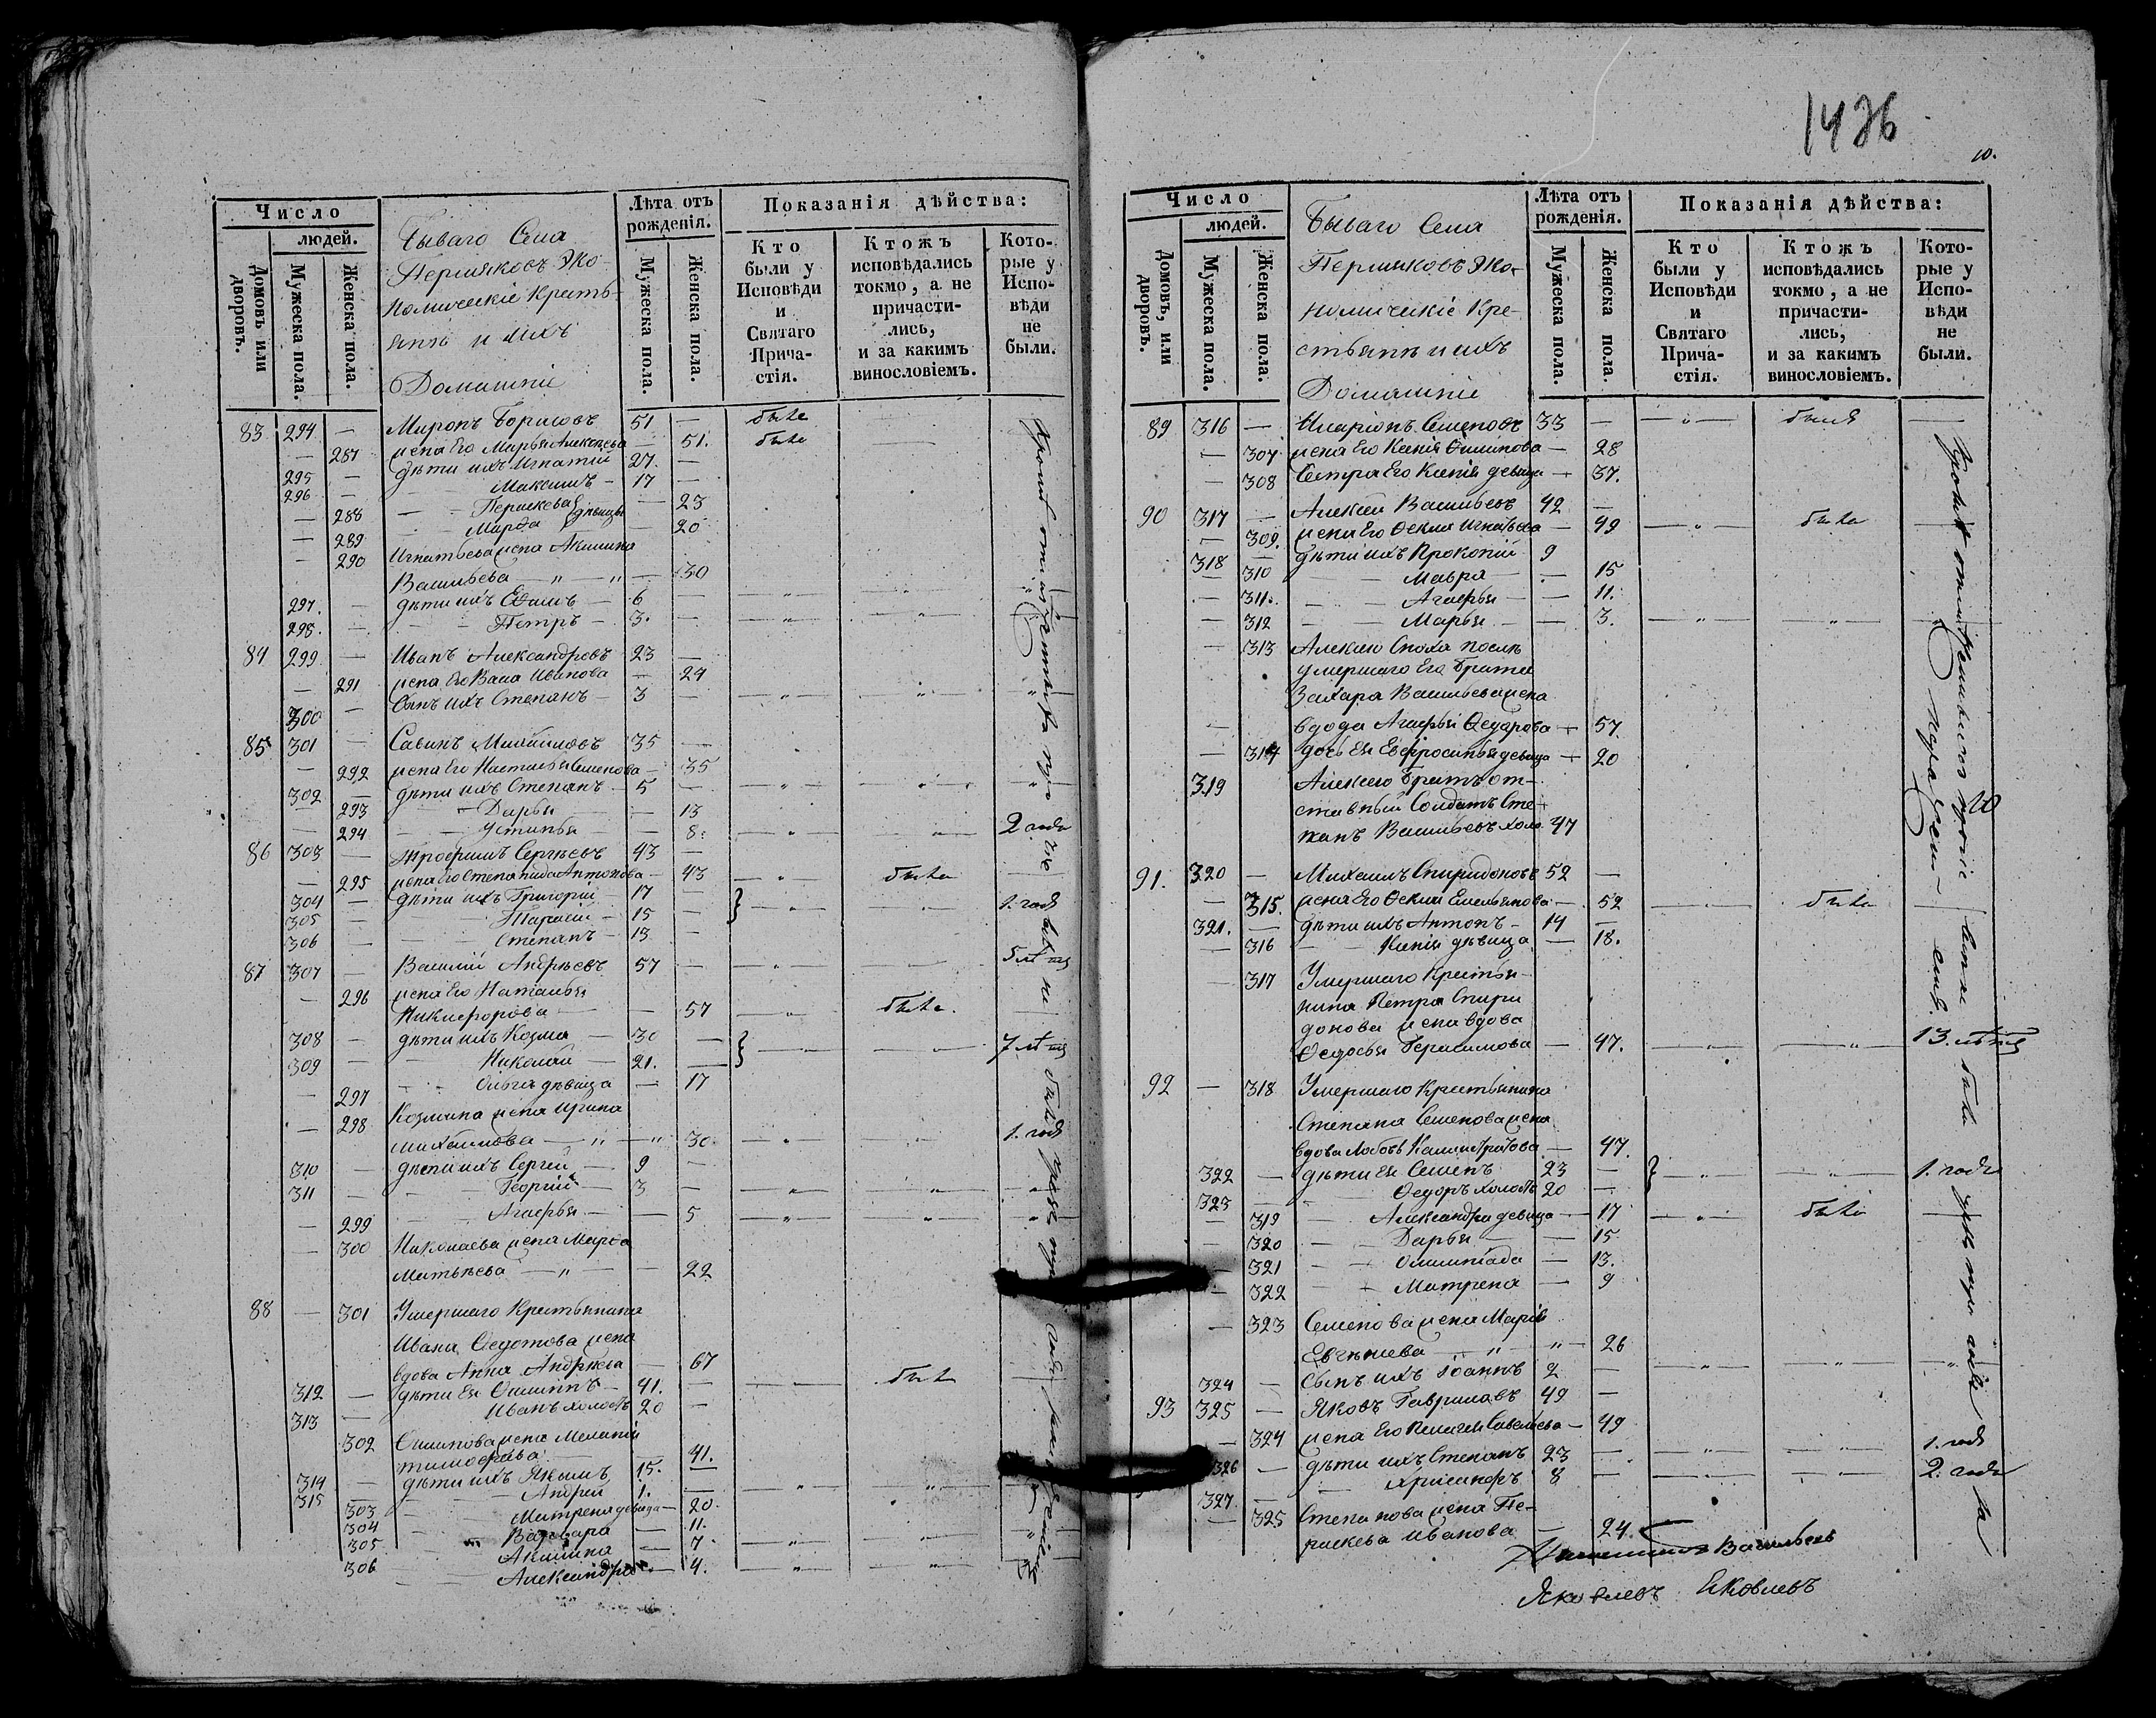 Число
людей.
Домовъ или дворовъ.
Мужеска пола.
Женска пола.
Бываго Села
Пермяковъ Эко-
номическіе Кресть-
яня и ихъ
Домашніе
Лѣта отъ рожденія.
Мужеска пола.
Женска пола.
Показанія дѣйства:
Кто были у Исповѣди и Святаго Прича-стія.
Ктожъ исповѣдались токмо, а не причасти-лись, и за какимъ винословіемъ.
Кото-рые у Испо-вѣди не были.
83 294 — Миронъ Борисовъ 51 — были
— 287 жена Его Марья Алексѣева — 51. были
295 — дѣти ихъ Игнатій 27. —
296 — Максимъ 17 —
— 288 Перскева дѣвицы — 23
— 289 Марфа — 20
— 290 Игнатьева жена Акилина
Васильева — 30
297. — дѣти ихъ Ефимъ 6 —
298. — Петръ 3. —
84 299 — Иванъ Александровъ 23 —
— 291 жена Его Васа Иванова — 24
300 — Сынъ ихъ Степанъ 3 —
85 301 — Савинъ Михайловъ 35 —
— 292 жена Его Наталья Семенова — 35
302 — дѣти ихъ Степанъ 5 —
— 293 Дарья — 13
— 294 Устинья — 8. 2 года
86 303 — Трофимъ Сергѣевъ 43 —
— 295 жена Его Степанида Антонова — 43 были
304 — дѣти ихъ Григорій 17 — 1. годъ
305 — Тарасій 15 —
306 — Степанъ 13 —
87 307 — Василій Андрѣевъ 57 —
— 296 жена Его Наталья
Никифорова — 57 были.
308 — дѣти ихъ Козма 30 —
309 — Николай 21. —
— 297 Ольга дѣвица — 17
— 298 Козмина жена Ирина
Михайлова — 30. 1. годъ
310 — дѣти ихъ Сергѣй 9 —
311 — Георгій 3 —
— 299 Агафья — 5
— 300 Николаева жена Марфа
Матвѣева — 22
88 — 301 Умершаго Крестьянина
Ивана Федотова жена
вдова Анна Андрѣева — 67
312 — дѣти Ея Осипъ 41. —
313 — Иванъ холостъ 20 —
302 Осипова жена Меланія
Тимофѣева 41.
314 — дѣти ихъ Якимъ 15. —
315 — Андрей 1. —
303 Матрена дѣвица — 20.
304 Варвара — 11.
305 Акилина — 7.
306 Александра — 4.
1436
10.
Число
людей.
Домовъ, или дворовъ.
Мужеска пола.
Женска пола.
Бываго Села
Пермяковъ Эко-
номическіе Кре-
стьяня и ихъ
Домашніе
Лѣта отъ рожденія.
Мужеска пола.
Женска пола.
Показанія дѣйства:
Кто были у Исповѣди и Святаго Прича-стія.
Ктожъ исповѣдались токмо, а не причасти-лись, и за какимъ винословіемъ.
Кото-рые у Испо-вѣди не были.
89 316 — Иларіонъ Семеновъ 33 —
— 307 жена Его Ксенія — 28
— 308 Сестра Его Ксенія дѣвица — 37.
90 317 — Алексѣй Васильевъ 42 —
— 309. жена Его Фекла Игнатьева — 49 были
318 — дѣти ихъ Прокопій 9
— 310 Мавра — 15
— 311. Агафья — 11.
— 312 Марья — 3.
— 313 Алексѣю Сноха послѣ
умершаго Его Брата
Захара Васильева жена
вдова Агафья Федорова — 57
— 314 дочь Ея Евфросинья дѣвица — 20
319 Алексѣю Братъ от-
ставный Солдатъ Сте-
панъ Васильевъ холо. 47
91. 320 — Михаилъ Спиридоновъ 52 —
— 315. жена Его Фекла Емельянова — 52 были
321. — дѣти ихъ Антонъ 14 —
— 316 Ксенія дѣвица — 18.
— 317 Умершаго Крестья-
нина Петра Спири
донова жена вдова
Федосья Герасимова — 47.
92 — 318 Умершаго Крестьянина
Степана Семенова жена
вдова Любовь Калистратова — 47.
322 — дѣти Ея Семенъ 23 — 1. годъ
323 — Федоръ холостъ 20 —
— 319 Александра дѣвица — 17 были
— 320 Дарья — 15
— 321 Олимпіада — 13.
— 322 Матрена — 9
— 323 Семенова жена Марія
Евгѣниева — 26
324 — Сынъ ихъ Іоаннъ 2
93 325 — Яковъ Гавриловъ 49 —
— 324 жена Его Пелагея Савельева — 49
326 — дѣти ихъ Степанъ 23 — 1. годъ
327. — Хрисанфъ 8 — 2. года
— 325 Степанова жена Пе-
раскева Иванова — 24.
Васильевъ
Яковлевъ Яковлевъ